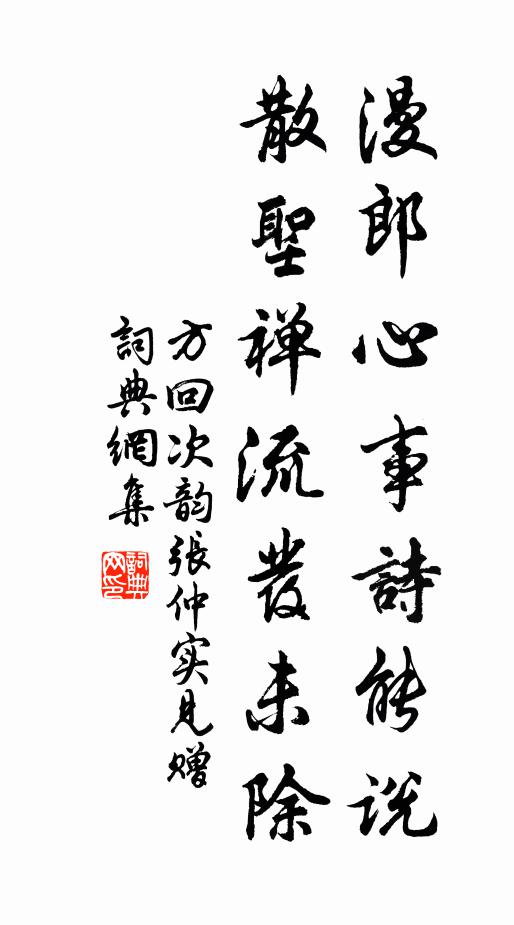 漫郎心事詩能説
散聖禅流發未除
方回次韵張仲实見赠
詞典網集
詞典網印